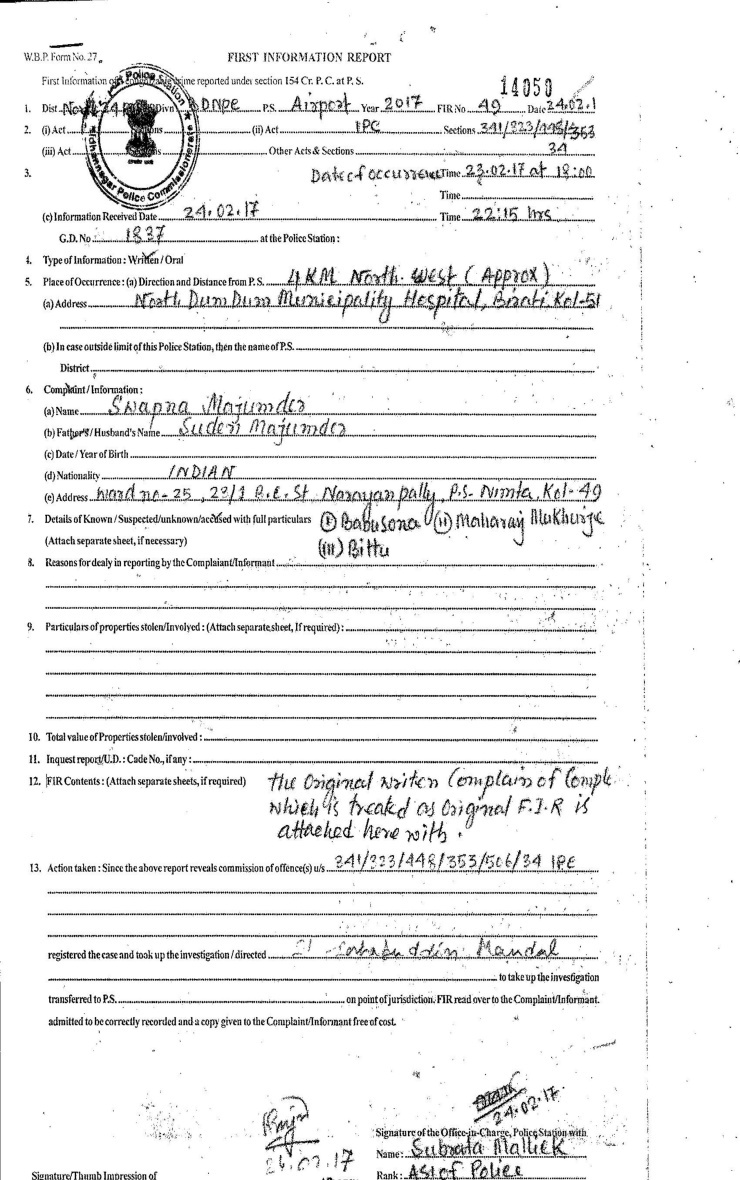 W.B.P. Form No. 27
FIRST INFORMATION REPORT
First Information of crime reported under section 154 Cr. P. C. at P. S.
14050
1. Dist. North 24 Divn. DNPE P.S. Airport Year 2017 FIR No 49 Date 24.02.1
2. (i) Act Sections (ii) Act IPC Sections 341/323/448/353
34
(iii) Act Other Acts & Sections
3. Date of occurrence Time 23.02.17 at 18:00
Time
(c) Information Received Date 24.02.17 Time 22:15 hrs
G.D. No. 1837 at the Police Station :
Police Station
Bidhannagar Police Commissionerate
4. Type of Information : Written / Oral
5. Place of Occurrence : (a) Direction and Distance from P. S. 4 KM North West (Approx)
(a) Address North Dum Dum Municipality Hospital, Birati Kol-51
(b) In case outside limit of this Police Station, then the name of P.S.
District
6. Complaint / Information :
(a) Name Swapna Majumder
(b) Father's / Husband's Name Suden Majumder
(c) Date / Year of Birth
(d) Nationality INDIAN
(e) Address Ward no - 25, 29/1 B.E. St Narayan pally, P.S- Nimta, Kol- 49
7. Details of Known / Suspected/unknown/accused with full particulars (i) Babusona (ii) Maharaj Mukhurje
(Attach separate sheet, if necessary) (iii) Bittu
8. Reasons for dealy in reporting by the Complaiant/Informant
9. Particulars of properties stolen/Involved : (Attach separate sheet, If required) :
10. Total value of Properties stolen/involved :
11. Inquest report/U.D. : Code No., if any :
12. FIR Contents : (Attach separate sheets, if required) the Original writen Complain of Comple
which is treated as Original F.I.R is
attached here with.
13. Action taken : Since the above report reveals commission of offence(s) u/s 341/323/448/353/506/34 IPC
registered the case and took up the investigation / directed SI Sorhabuddin Mandal
to take up the investigation
transferred to P.S. on point of jurisdiction. FIR read over to the Complaint/Informant.
admitted to be correctly recorded and a copy given to the Complaint/Informant free of cost.
24.02.17
24.02.17
Signature of the Office-in-Charge, Police Station with
Name : Subrata Mallick
Signature/Thumb Impression of
Rank : ASI of Police